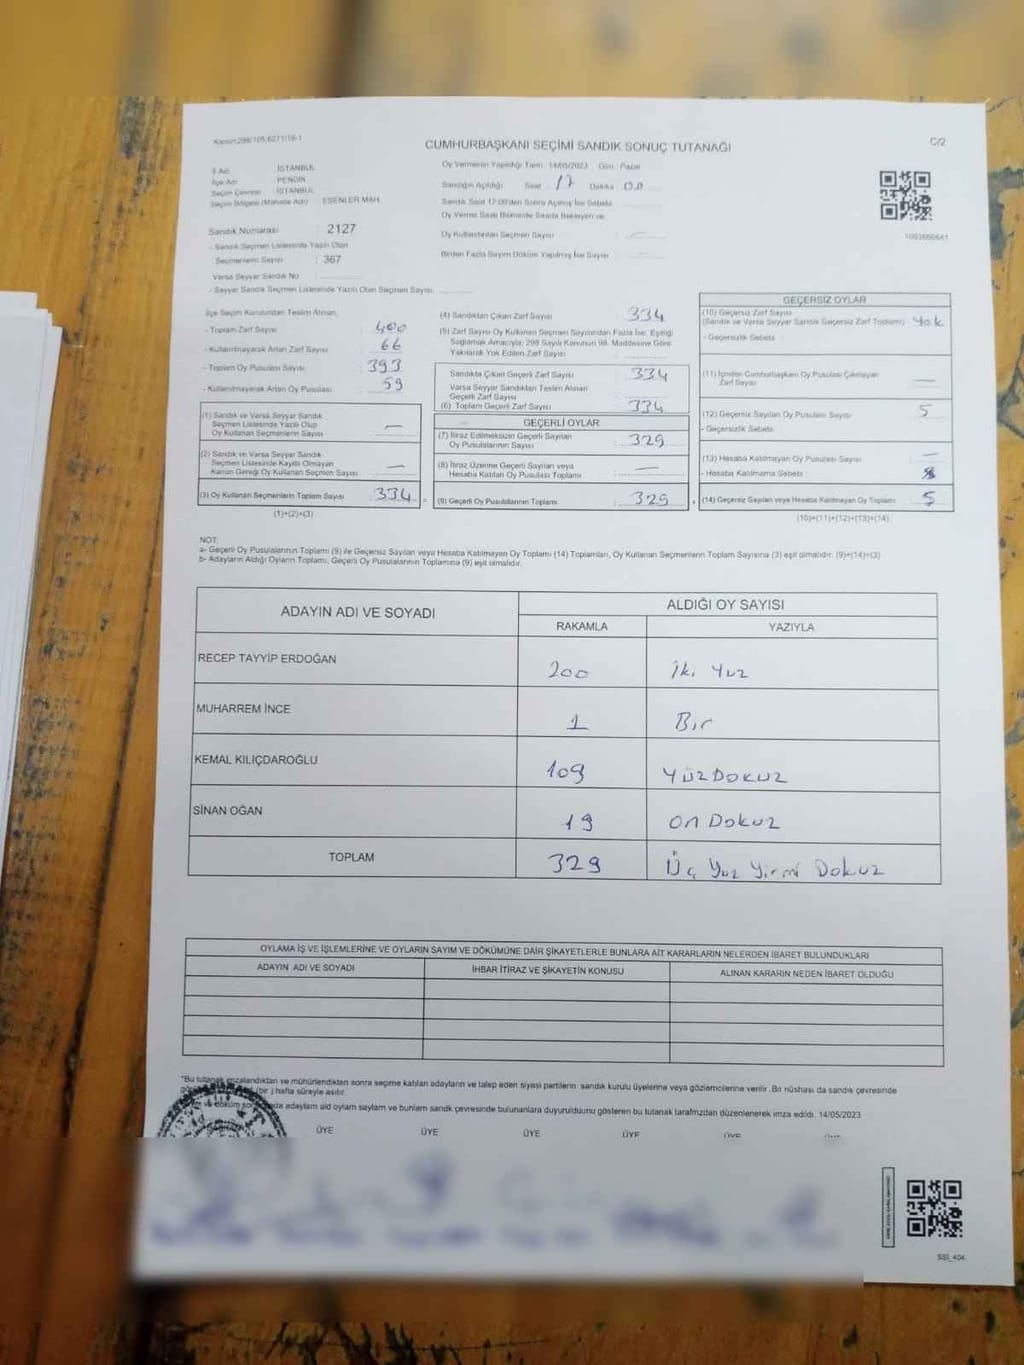 Kanun:298/105;6271/19-1
CUMHURBAŞKANI SEÇİMİ SANDIK SONUÇ TUTANAĞI
C/2
İl Adı : İSTANBUL
İlçe Adı : PENDİK
Seçim Çevresi : İSTANBUL
Seçim Bölgesi (Mahalle Adı) : ESENLER MAH.
Oy Vermenin Yapıldığı Tarih : 14/05/2023 Gün : Pazar
Sandığın Açıldığı Saat : 17 Dakika : 00
Sandık Saat 17.00'den Sonra Açılmış İse Sebebi
Oy Verme Saati Bitiminde Sırada Bekleyen ve
Oy Kullandırılan Seçmen Sayısı : —
Birden Fazla Sayım Döküm Yapılmış İse Sayısı : —
1093666641
Sandık Numarası : 2127
- Sandık Seçmen Listesinde Yazılı Olan
Seçmenlerin Sayısı : 367
Varsa Seyyar Sandık No :
- Seyyar Sandık Seçmen Listesinde Yazılı Olan Seçmen Sayısı:
İlçe Seçim Kurulundan Teslim Alınan,
- Toplam Zarf Sayısı : 400
- Kullanılmayarak Artan Zarf Sayısı : 66
- Toplam Oy Pusulası Sayısı : 393
- Kullanılmayarak Artan Oy Pusulası : 59
(1) Sandık ve Varsa Seyyar Sandık
Seçmen Listesinde Yazılı Olup
Oy Kullanan Seçmenlerin Sayısı : —
(2) Sandık ve Varsa Seyyar Sandık
Seçmen Listesinde Kayıtlı Olmayan
Kanun Gereği Oy Kullanan Seçmen Sayısı : —
(3) Oy Kullanan Seçmenlerin Toplam Sayısı : 334
(1)+(2)=(3)
(4) Sandıktan Çıkan Zarf Sayısı : 334
(5) Zarf Sayısı Oy Kullanan Seçmen Sayısından Fazla İse, Eşitliği
Sağlamak Amacıyla, 298 Sayılı Kanunun 98. Maddesine Göre
Yakılarak Yok Edilen Zarf Sayısı :
Sandıkta Çıkan Geçerli Zarf Sayısı : 334
Varsa Seyyar Sandıktan Teslim Alınan
Geçerli Zarf Sayısı :
(6) Toplam Geçerli Zarf Sayısı : 334
GEÇERLİ OYLAR
(7) İtiraz Edilmeksizin Geçerli Sayılan
Oy Pusulalarının Sayısı : 329
(8) İtiraz Üzerine Geçerli Sayılan veya
Hesaba Katılan Oy Pusulası Toplamı : —
(9) Geçerli Oy Pusulalarının Toplamı : 329
GEÇERSİZ OYLAR
(10) Geçersiz Zarf Sayısı
(Sandık ve Varsa Seyyar Sandık Geçersiz Zarf Toplamı) : Yok
- Geçersizlik Sebebi :
(11) İçinden Cumhurbaşkanı Oy Pusulası Çıkmayan
Zarf Sayısı : —
(12) Geçersiz Sayılan Oy Pusulası Sayısı : 5
- Geçersizlik Sebebi :
(13) Hesaba Katılmayan Oy Pusulası Sayısı : —
- Hesaba Katılmama Sebebi :
(14) Geçersiz Sayılan veya Hesaba Katılmayan Oy Toplamı : 5
(10)+(11)+(12)+(13)=(14)
NOT:
a- Geçerli Oy Pusulalarının Toplamı (9) ile Geçersiz Sayılan veya Hesaba Katılmayan Oy Toplamı (14) Toplamları, Oy Kullanan Seçmenlerin Toplam Sayısına (3) eşit olmalıdır. (9)+(14)=(3)
b- Adayların Aldığı Oyların Toplamı, Geçerli Oy Pusulalarının Toplamına (9) eşit olmalıdır.
ADAYIN ADI VE SOYADI
ALDIĞI OY SAYISI
RAKAMLA YAZIYLA
RECEP TAYYİP ERDOĞAN 200 İki Yuz
MUHARREM İNCE 1 Bir
KEMAL KILIÇDAROĞLU 109 YÜZDOKUZ
SİNAN OĞAN 19 On Dokuz
TOPLAM 329 Üç Yuz Yirmi Dokuz
OYLAMA İŞ VE İŞLEMLERİNE VE OYLARIN SAYIM VE DÖKÜMÜNE DAİR ŞİKAYETLERLE BUNLARA AİT KARARLARIN NELERDEN İBARET BULUNDUKLARI
ADAYIN ADI VE SOYADI İHBAR İTİRAZ VE ŞİKAYETİN KONUSU ALINAN KARARIN NEDEN İBARET OLDUĞU
"Bu tutanak imzalandıktan ve mühürlendikten sonra seçime katılan adayların ve talep eden siyasi partilerin sandık kurulu üyelerine veya gözlemcilerine verilir. Bir nüshası da sandık çevresinde
(bir) hafta süreyle asılır.
ve döküm adayların aldı oyların sayıları ve bunların sandık çevresinde bulunanlara duyurulduğunu gösteren bu tutanak tarafımızdan düzenlenerek imza edildi. 14/05/2023
ÜYE ÜYE ÜYE ÜYE ÜYE
SSİ_404